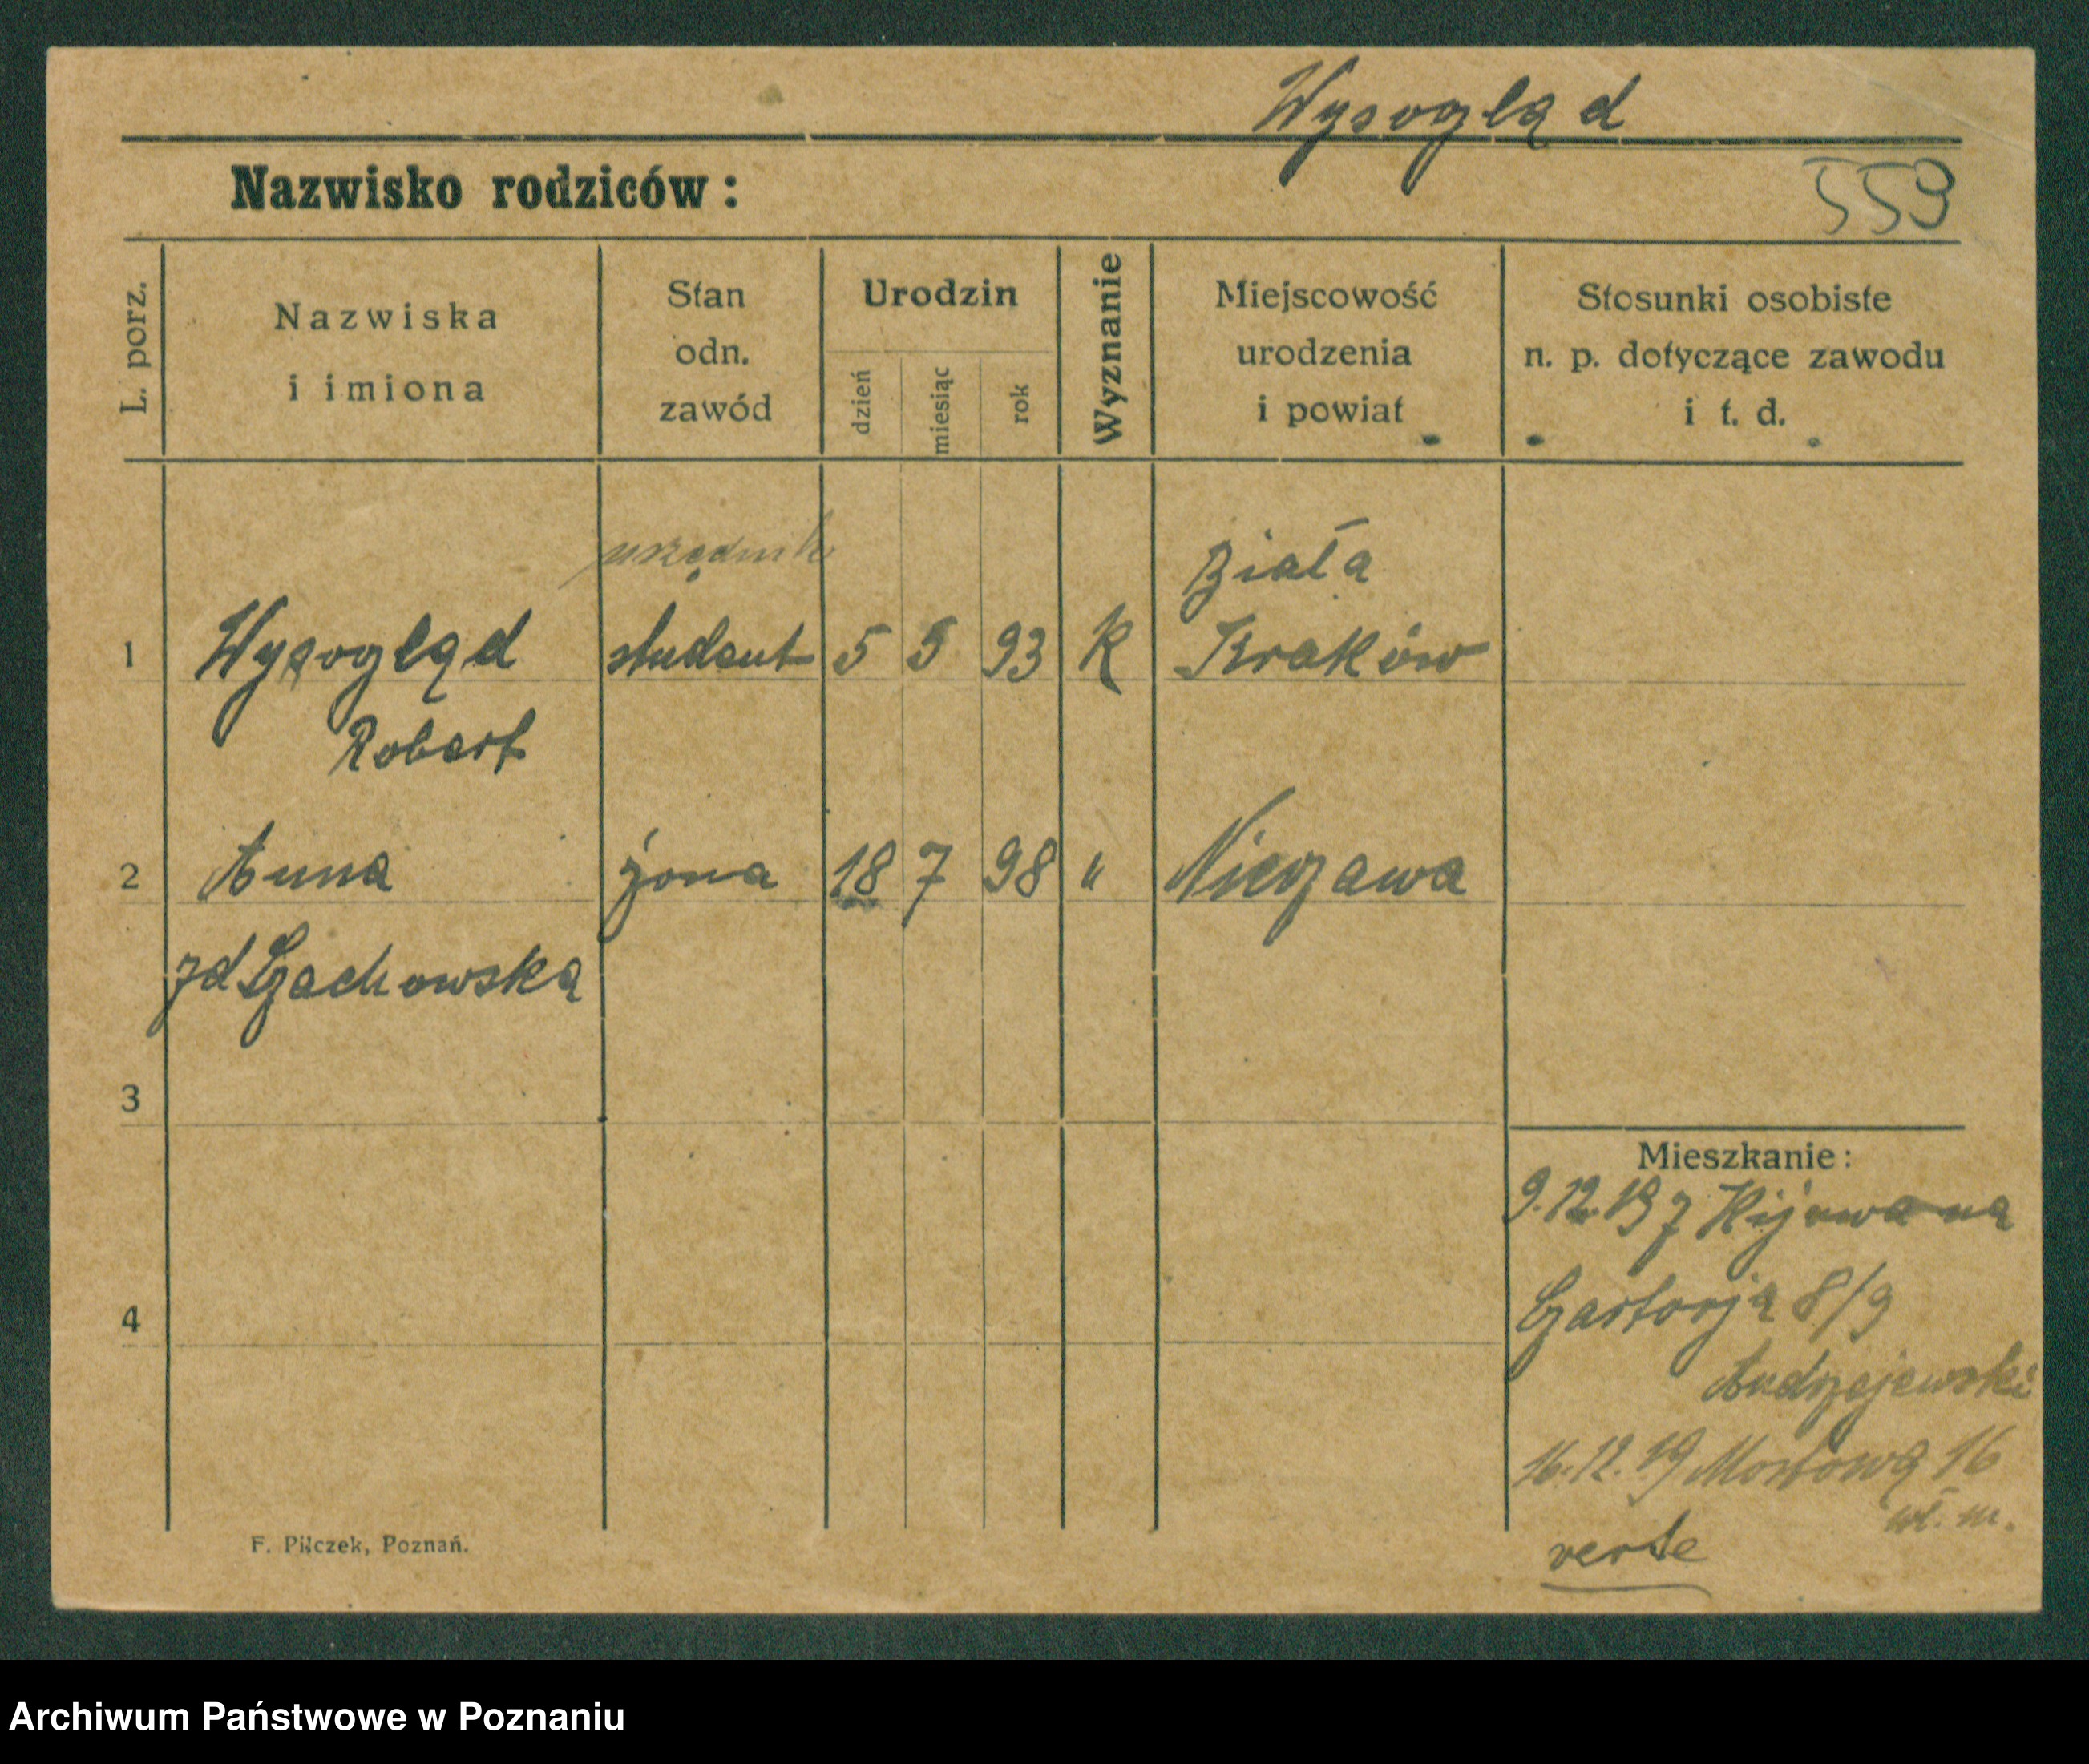 Wysogląd
Nazwisko rodziców:
559
L. porz.
Nazwiska
i imiona
Stan
odn.
zawód
Urodzin
dzień
miesiąc
rok
Wyznanie
Miejscowość
urodzenia
i powiat
Stosunki osobiste
n. p. dotyczące zawodu
i t. d.
urzędnik
Biała
1 Wysogląd student 5 5 93 K Kraków
Robert
2 Anna żona 18 7 98 " Nieszawa
zd Czachowska
3
Mieszkanie:
9.12.19 z
4
Czartorja 8/9
Andrzejewski
16.12.19 Mostowa 16
wł. m.
verte
F. Pilczek, Poznań.
Archiwum Państwowe w Poznaniu